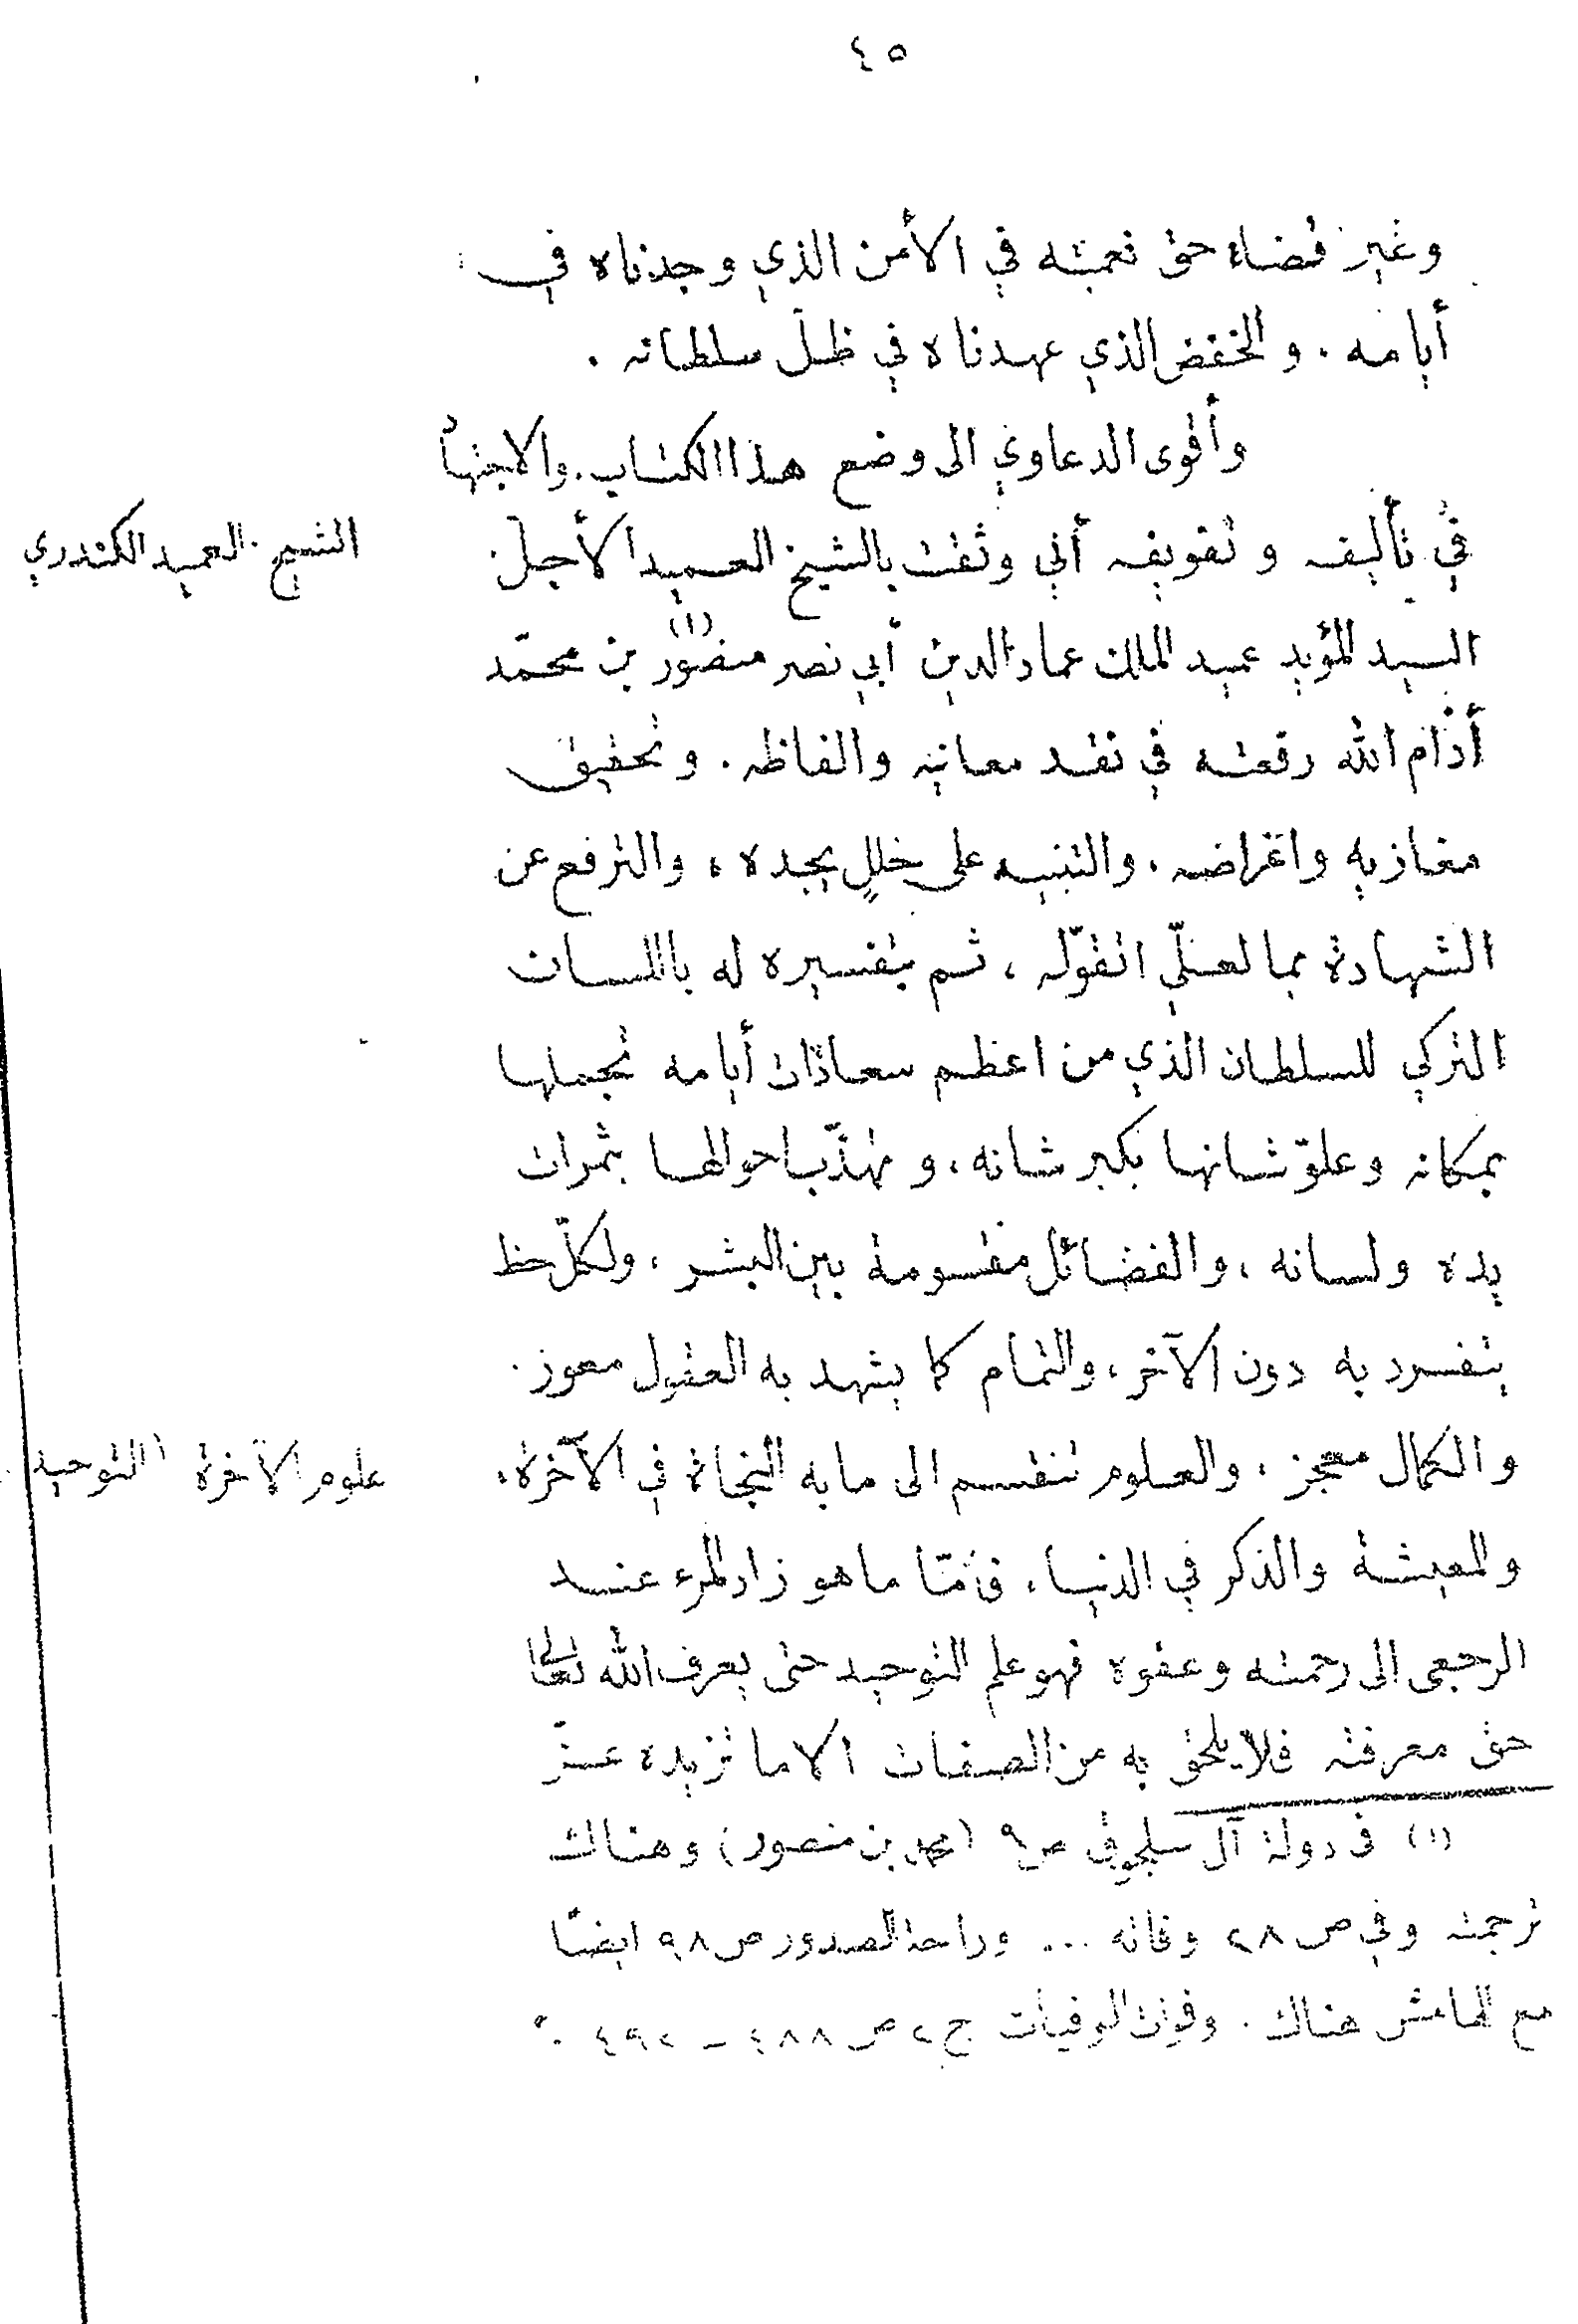 ٤٥
وغير قضاء حق نعمته في الأمن الذي وجدناه في
أيامه . والخفض الذي عهدناه في ظلّ سلطانه .
وأقوى الدعاوي الى وضع هذا الكتاب . والاجتهاد
في تأليفه و تقويفه أني وثقت بالشيخ العميد الأجل
الشيخ العميد الكندري
السيد المؤيد عميد الملك عماد الدين أبي نصر منصور (١) بن محمّد
أدام الله رفعته في نقد معانيه والفاظه . وتحقيق
مغازيه واغراضه ، والتنبيه على خللٍ يجده ، والترفع عن
الشهادة بما لعلّي اتقوّله ، ثم بتفسيره له باللسان
التركي للسلطان الذي من اعظم سعادات أيامه تجملها
بمكانه وعلوّ شانها بكبر شانه ، و تهذّب احوالها بثمرات
يده ولسانه ، والفضائل مقسومة بين البشر ، ولكلّ حظ
يتفرد به دون الآخر ، والتمام كما يشهد به العقول معوز .
والكمال معجز ، والعلوم تنقسم الى مابه النجاة في الآخرة ،
علوم الآخرة التوحيد
والمعيشة والذكر في الدنيا ، فأمّا ما هو زاد المرء عند
الرجعى الى رحمته وعفوه فهو علم التوحيد حتى يعرف الله تعالى
حق معرفته فلا يلحق به من الصفات الا ما تزيده عزّ
(١) في دولة آل سلجوق ص ٩ (محمد بن منصور) وهناك
ترجمته وفي ص ٢٨ وفاته ... وراحة الصدور ص ٩٨ ايضًا
مع الهامش هناك . وفوات الوفيات ج ٢ ص ٤٨٨ - ٤٩٢ .